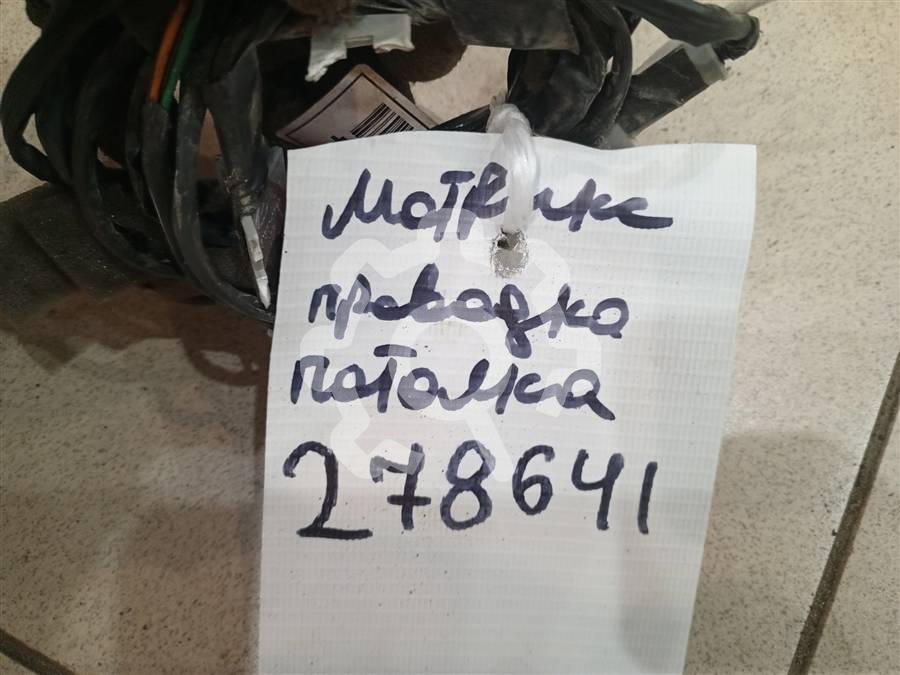 Матрикс
проводка
Патолка
278641